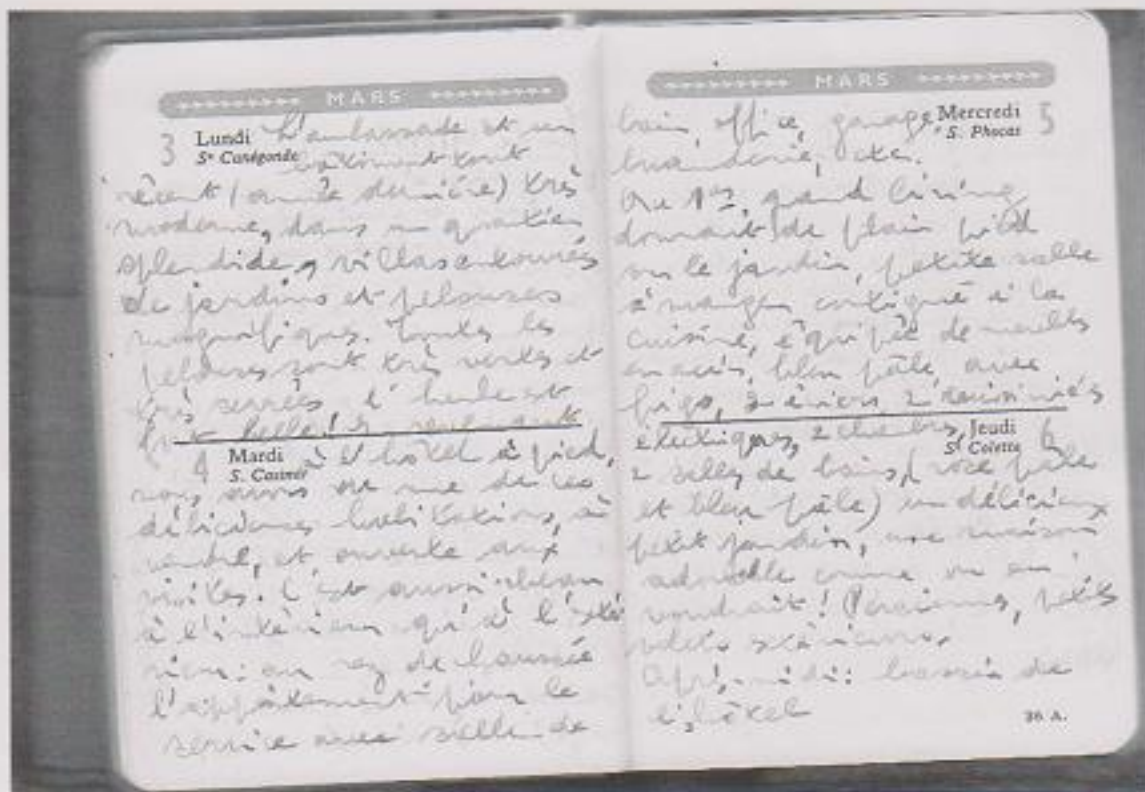 MARS
3 Lundi L'ambassade est un
Sᵉ Cunégonde bâtiment tout
récent (année dernière) très
moderne, dans un quartier
splendide, villas entourées
de jardins et pelouses
magnifiques. Toutes les
pelouses sont très vertes et
très serrées l'herbe est
belle!
4 Mardi à l'hôtel à pied,
S. Casimir
nous avons vu une de ces
délicieuses habitations, à
vendre, et ouverte aux
visites. C'est aussi beau
à l'intérieur qu'à l'exté
rieur: au rez de chaussée
l'appartement pour le
service avec salle de
MARS
bain, office, garage Mercredi 5
buanderie, etc. S. Phocas
Au 1er, grand living
donnant de plain pied
sur le jardin, petite salle
à manger contiguë à la
cuisine, équipée de meubles
en acier, bleu pâle avec
frigo, 2 éviers, 2 cuisinières
électriques, 2 chambres, Jeudi 6
Sᵉ Colette
2 salles de bains, (rose pâle
et bleu pâle) un délicieux
petit jardin, une maison
adorable comme on en
voudrait! Persiennes, petits
volets extérieurs.
Après-midi: bassin de
l'hôtel
36 A.